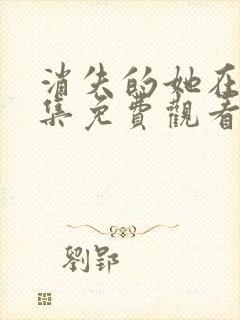 消失的她在
集免費觀看
劉郢